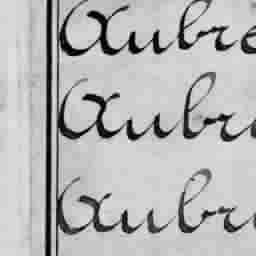 Aubre
Aubr
Aubr